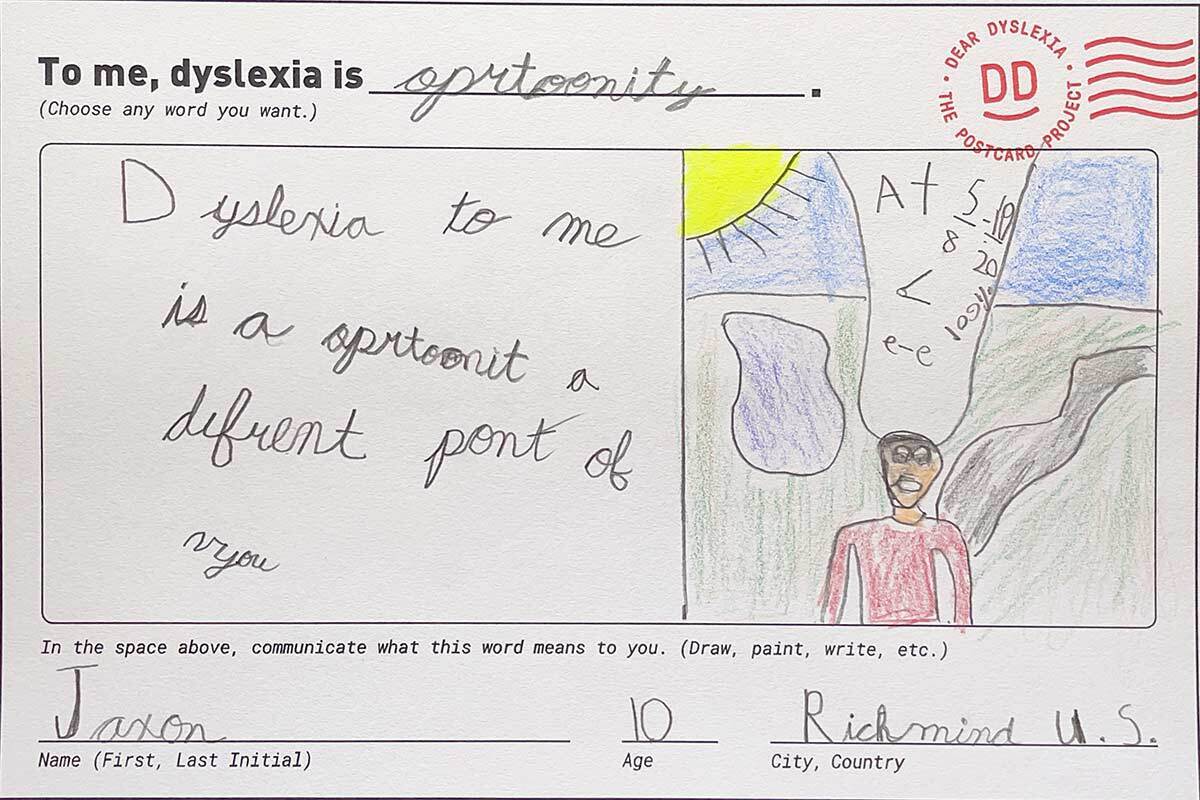 To me, dyslexia is oprtoonity.
(Choose any word you want.)
· DEAR DYSLEXIA · THE POSTCARD PROJECT
DD
Dyslexia to me
is a oprtoonit a
difrent pont of
vyou
At
5
8
20
<
100%
e-e
In the space above, communicate what this word means to you. (Draw, paint, write, etc.)
Jaxon 10 Richmind U.S.
Name (First, Last Initial) Age City, Country